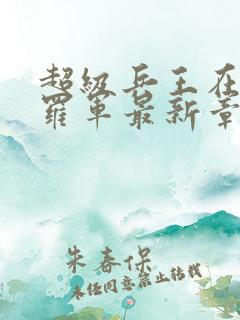 超级兵王在
罗军最新章
朱春保
未经同意禁止转载